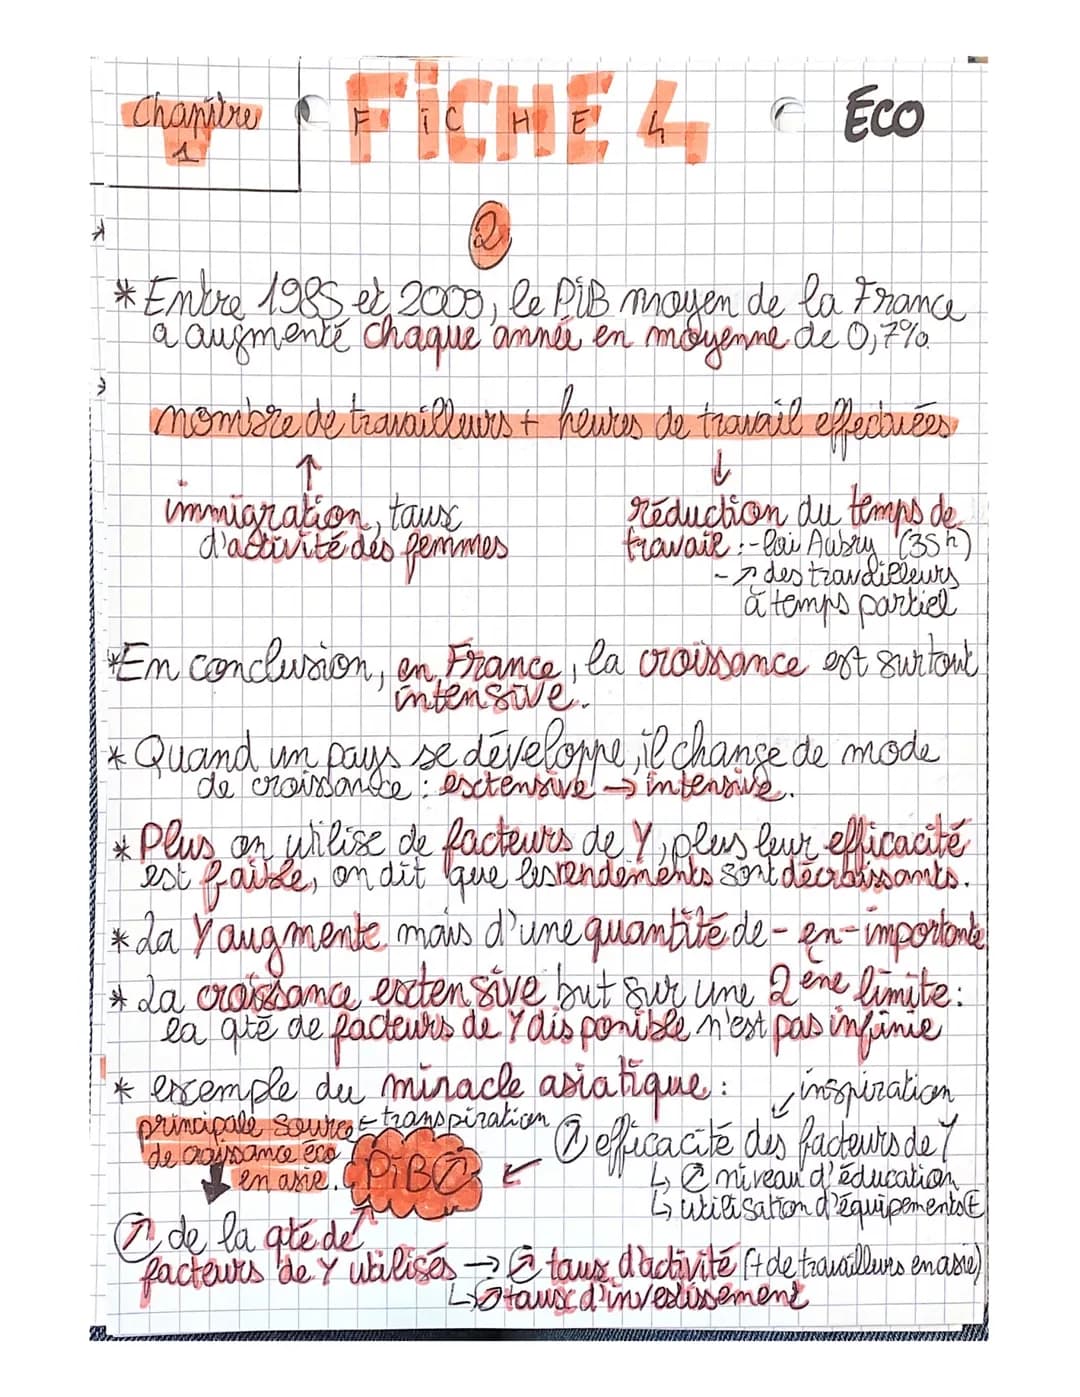 Chapitre
1
FiCHE 4
F i C H E 4
Eco
2
* Entre 1985 et 2009, le PiB moyen de la France
a augmenté chaque année en moyenne de 0,7%.
nombre de travailleurs + heures de travail effectuées
↑ ↓
immigration, taux
d'activité des femmes
réduction du temps de
travail : - loi Aubry (35h)
- ↗ des travailleurs
à temps partiel
*En conclusion, en France, la croissance est surtout
intensive.
* Quand un pays se développe, il change de mode
de croissance : extensive → intensive.
* Plus on utilise de facteurs de Y, plus leur efficacité
est faible, on dit que les rendements sont décroissants.
* La Y augmente mais d'une quantité de - en - importante
* La croissance extensive but sur une 2ene limite :
la qté de facteurs de Y disponible n'est pas infinie
* exemple du miracle asiatique :
inspiration
principale source ← transpiration
de croissance éco
en asie.
PiB ↗
↗ efficacité des facteurs de Y
↳ ↗ niveau d'éducation
↳ utilisation d'équipements
↗ de la qté de
facteurs de Y utilisés → ↗ taux d'activité (+ de travailleurs en asie)
↳ ↗ taux d'investissement